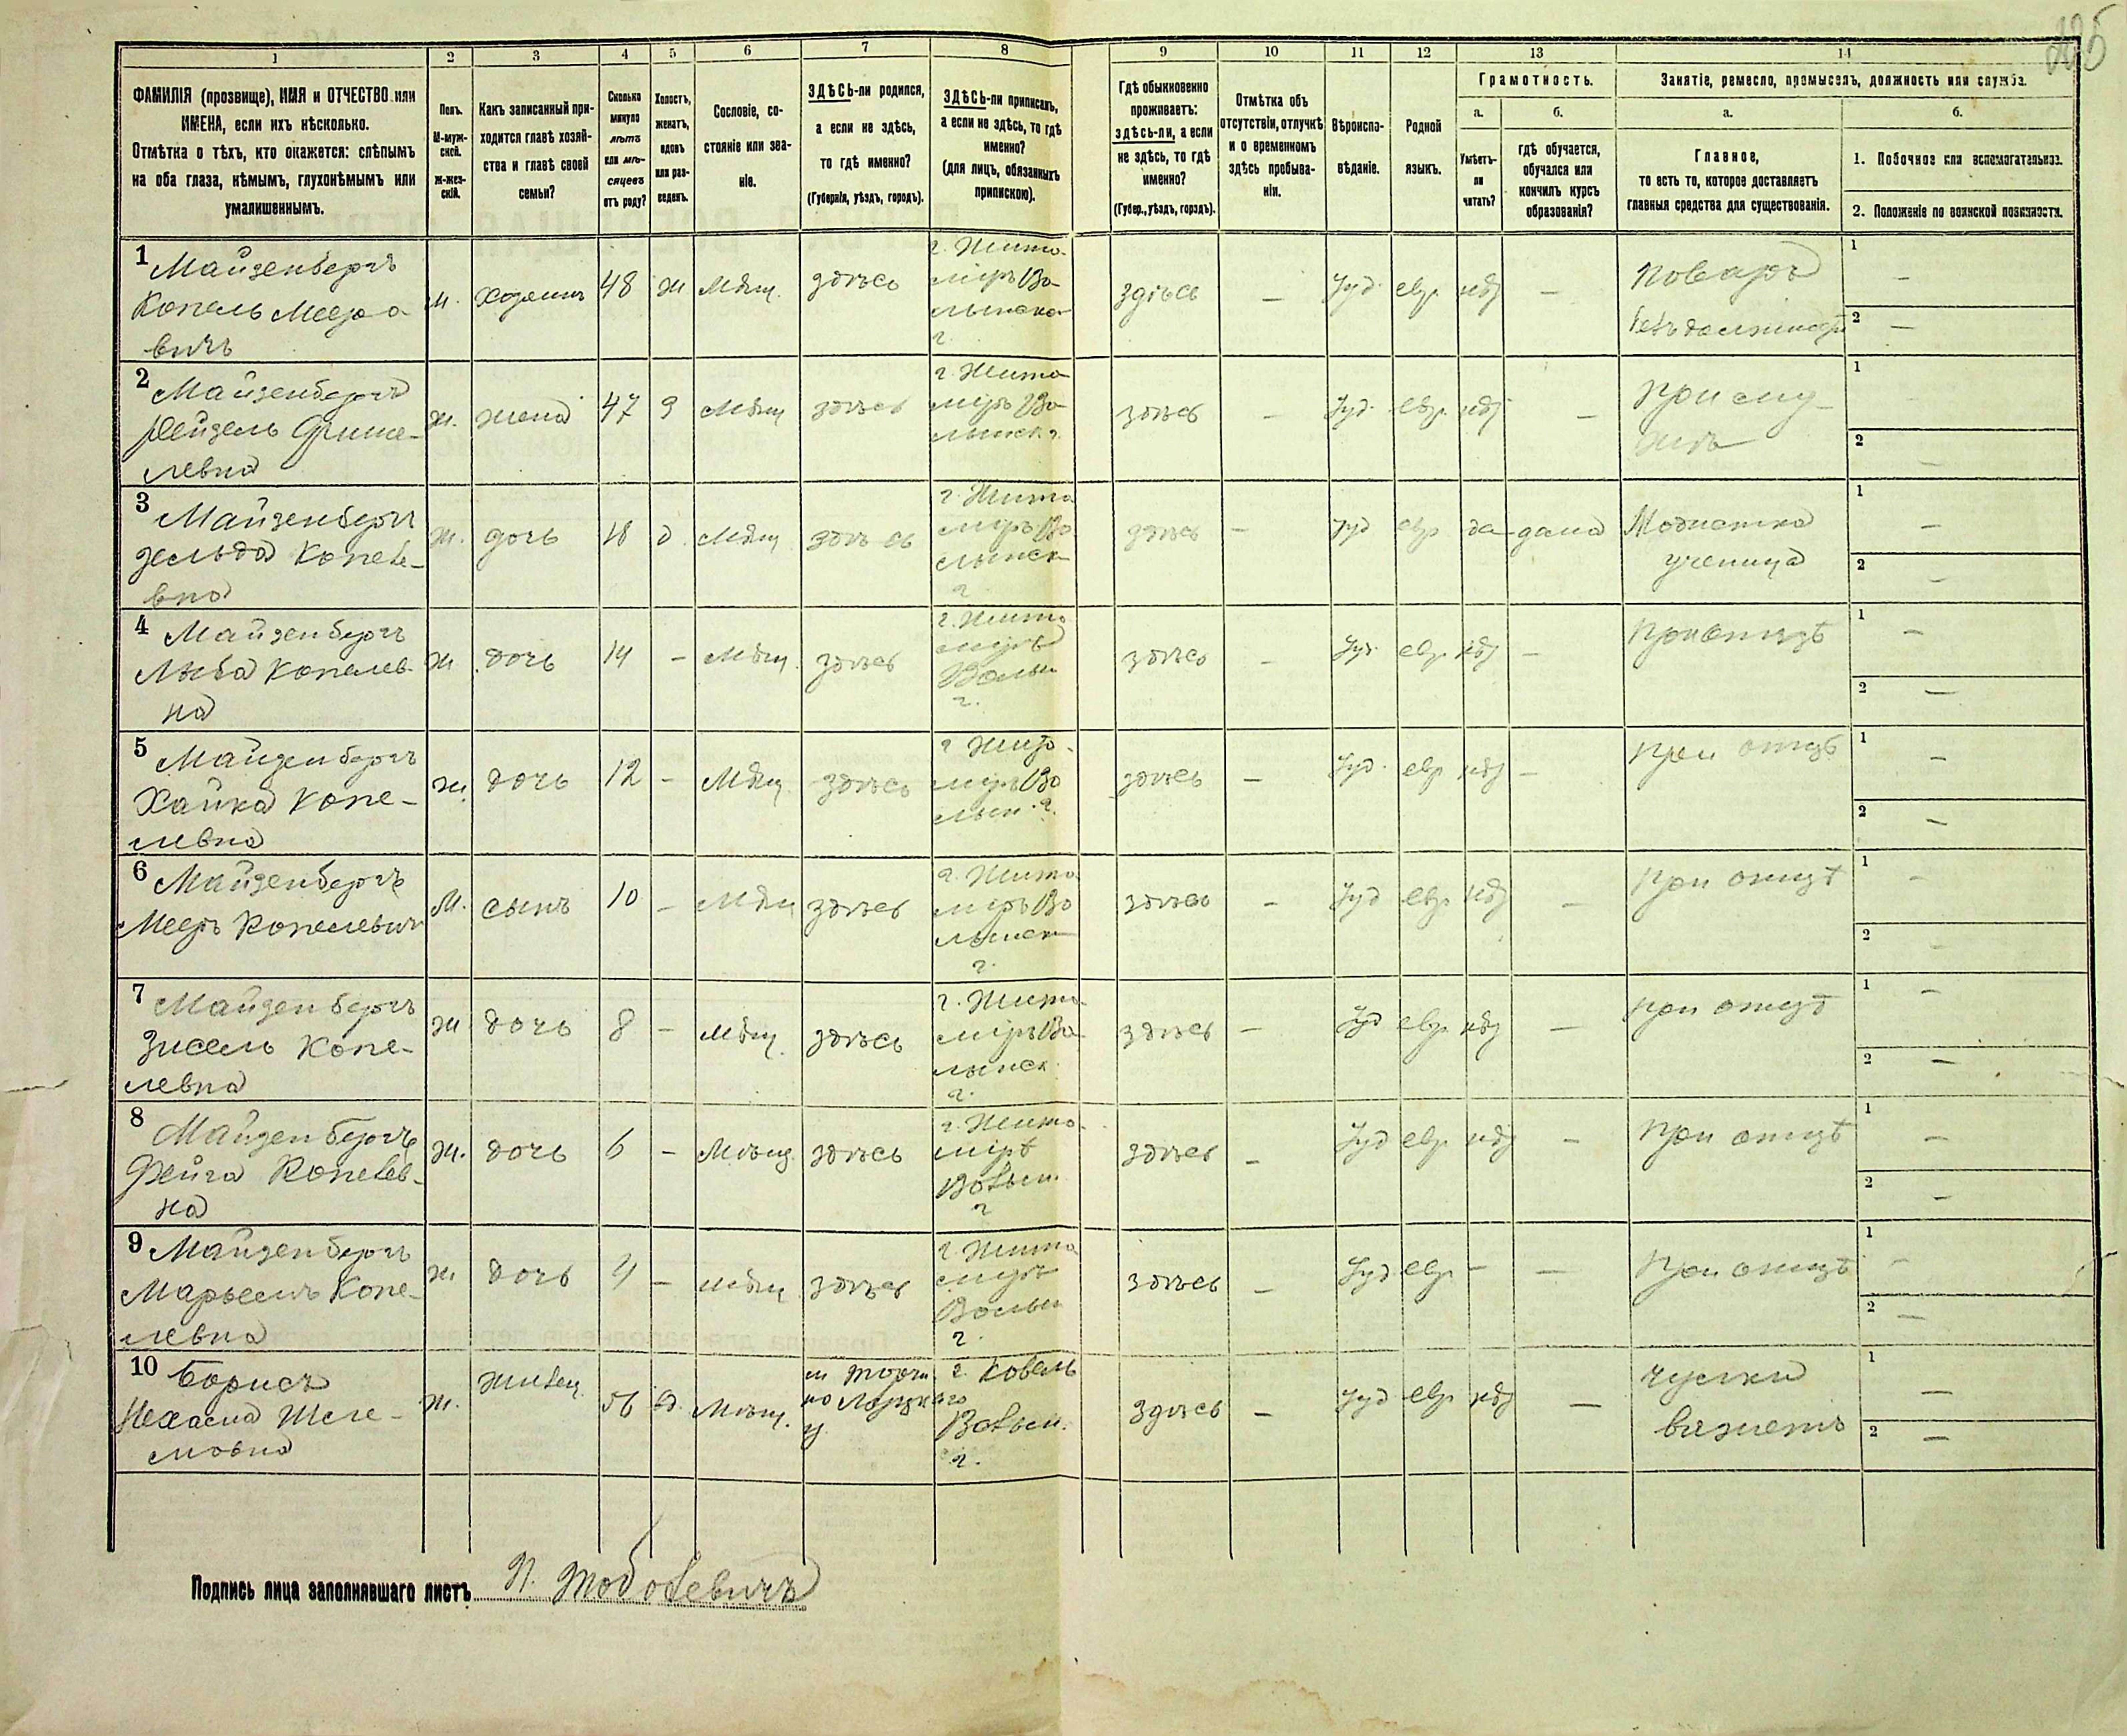 225
1 2 3 4 5 6 7 8 9 10 11 12 13 14
ФАМИЛІЯ (прозвище), ИМЯ и ОТЧЕСТВО или
ИМЕНА, если ихъ нѣсколько.
Отмѣтка о тѣхъ, кто окажется: слѣпымъ
на оба глаза, нѣмымъ, глухонѣмымъ или
умалишеннымъ.
Полъ.
М-муж-
ской.
Ж-жен-
скій.
Какъ записанный при-
ходится главѣ хозяй-
ства и главѣ своей
семьи?
Сколько
минуло
лѣтъ
или мѣ-
сяцевъ
отъ роду?
Холостъ,
женатъ,
вдовъ
или раз-
веденъ.
Сословіе, со-
стояніе или зва-
ніе.
ЗДѢСЬ-ли родился,
а если не здѣсь,
то гдѣ именно?
(Губернія, уѣздъ, городъ).
ЗДѢСЬ-ли приписанъ,
а если не здѣсь, то гдѣ
именно?
(для лицъ, обязанныхъ
припискою).
Гдѣ обыкновенно
проживаетъ:
здѣсь-ли, а если
не здѣсь, то гдѣ
именно?
(Губер., уѣздъ, городъ).
Отмѣтка объ
отсутствіи, отлучкѣ
и о временномъ
здѣсь пребыва-
ніи.
Вѣроиспо-
вѣданіе.
Родной
языкъ.
Грамотность.
а.
Умѣетъ-
ли
читать?
б.
гдѣ обучается,
обучался или
кончилъ курсъ
образованія?
Занятіе, ремесло, промыселъ, должность или служба.
а.
Главное,
то есть то, которое доставляетъ
главныя средства для существованія.
б.
1. Побочное или вспомогательное.
2. Положеніе по воинской повинности.
1 Майзенбергъ
Копель Мееро
вичъ
м. хозяинъ 48 ж Мѣщ. здѣсь
г. Жито
міръ Во
лынско
г.
здѣсь — Іуд. евр. нѣт —
поваръ
безъ должности
1 —
2 —
2 Майзенбергъ
Рейзель Фише-
левна
ж. жена 47 З Мѣщ здѣсь
г. Жито
міръ Во
лынск г.
здѣсь — Іуд. евр. нѣт —
При му-
жѣ
1
2 —
3 Майзенбергъ
Зельда Копеле-
вна
ж. дочь 18 д. Мѣщ здѣсь
г. Жито
міръ Во
лынск
г
здѣсь — Іуд евр да дома
Модистка
ученица
1 —
2 —
4 Майзенбергъ
Лыба Копелев-
на
ж дочь 14 — Мѣщ. здѣсь
г. Жито
міръ
Волын
г.
здѣсь — Іуд. евр. нѣт —
при отцѣ
1 —
2 —
5 Майзенбергъ
Хайка Копе-
левна
ж. дочь 12 — Мѣщ. здѣсь
г Жито
міръ Во
лын. г.
здѣсь — Іуд. евр нѣт —
при отцѣ
1 —
2 —
6 Майзенбергъ
Мееръ Копелевич
М. сынъ 10 — Мѣщ здѣсь
г. Жито
міръ Во
лынск
г.
здѣсь — Іуд евр. нѣт —
при отцѣ
1 —
2 —
7 Майзенбергъ
Зисель Копе-
левна
ж дочь 8 — мѣщ. здѣсь
г. Жито
міръ Во
лынск.
г.
здѣсь — Іуд евр. нѣт —
при отцѣ
1 —
2 —
8 Майзенбергъ
Фейга Копелев-
на
ж. дочь 6 — Мѣщ. здѣсь
г. Жито
міръ
Волын.
г
здѣсь — Іуд евр. нѣт —
при отцѣ
1 —
2 —
9 Майзенбергъ
Марьемъ Копе-
левна
ж. дочь 4 — мѣщ здѣсь
г. Жито
міръ
Волын
г.
здѣсь — Іуд евр. — —
При отцѣ
1 —
2 —
10 Борисъ
Нехама Шле-
мовна
ж. жилец. 56 в. Мѣщ.
м Торчи
но Луцкаго
у.
г. Ковель
Волын.
г.
здѣсь — Іуд евр. нѣт —
чулки
вяжетъ
1 —
2 —
Подпись лица заполнявшаго листъ